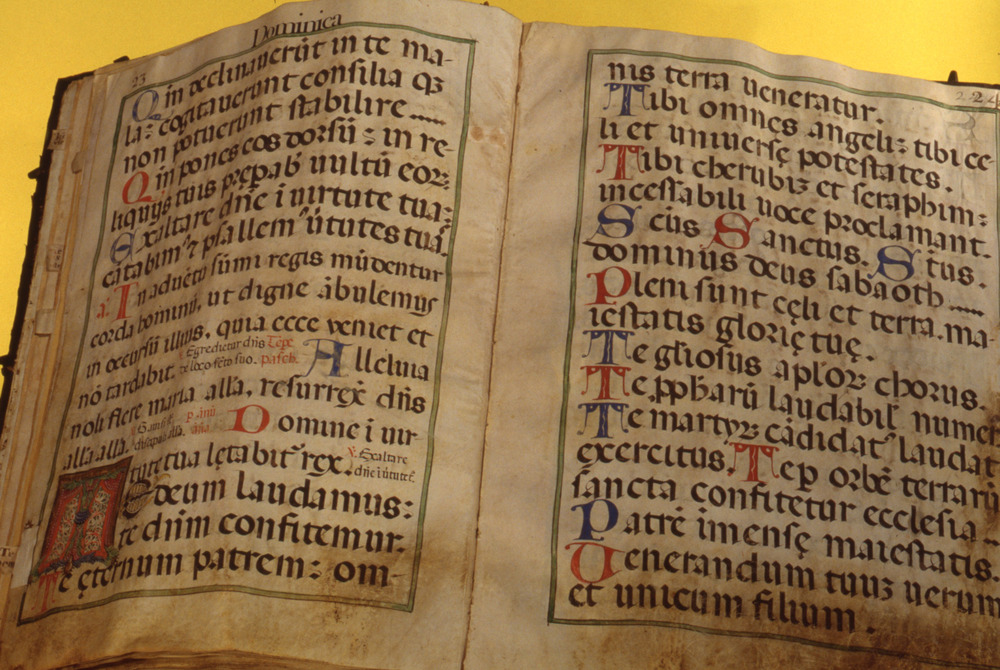 Dominica
23
Qm declinaverūt in te ma-
la: cogitaverunt consilia qȝ
non potuerunt stabilire
Qm pones eos dorsū: in re-
liquijs tuis prepab vultū eorȝ
Exaltare dn̄e i virtute tua:
cātabimȝ psallemȝ v̄tutes tuā.
a. In aduētū sūmi regis mūdentur
corda hominū, ut digne ābulemus
in occursū illius, quia ecce veniet et
nō tardabit. Egredietur dn̄s de loco sēto suo. Tēpe pasch. Alleluia
noli flere maria alla, resurrex̄ dn̄s
alla alla. Domine i vir-
tute tua lętabitȝ rex. ℣. Exaltare dn̄e i v̄tute
Te deum laudamus:
te dn̄m confitemur.
Te ęternum patrem: om-
224
nis terra ueneratur.
Tibi omnes angeli: tibi cę
li et uniuersę potestates.
Tibi cherubiȝ et seraphim:
incessabili uoce proclamant.
Sc̄us Sanctus. Sc̄tus.
dominus deus sabaoth
Pleni sunt cęli et terra. ma-
iestatis glorię tuę.
Te gl̄iosus aplorȝ chorus.
Te pphārū laudabil' numer
Te martyrȝ cādidatȝ laudat
exercitus. Te p orbē terrarū
sancta confitetur ecclesia
Patrē īmensę maiestatis.
Uenerandum tuuȝ uerum
et unicum filium.